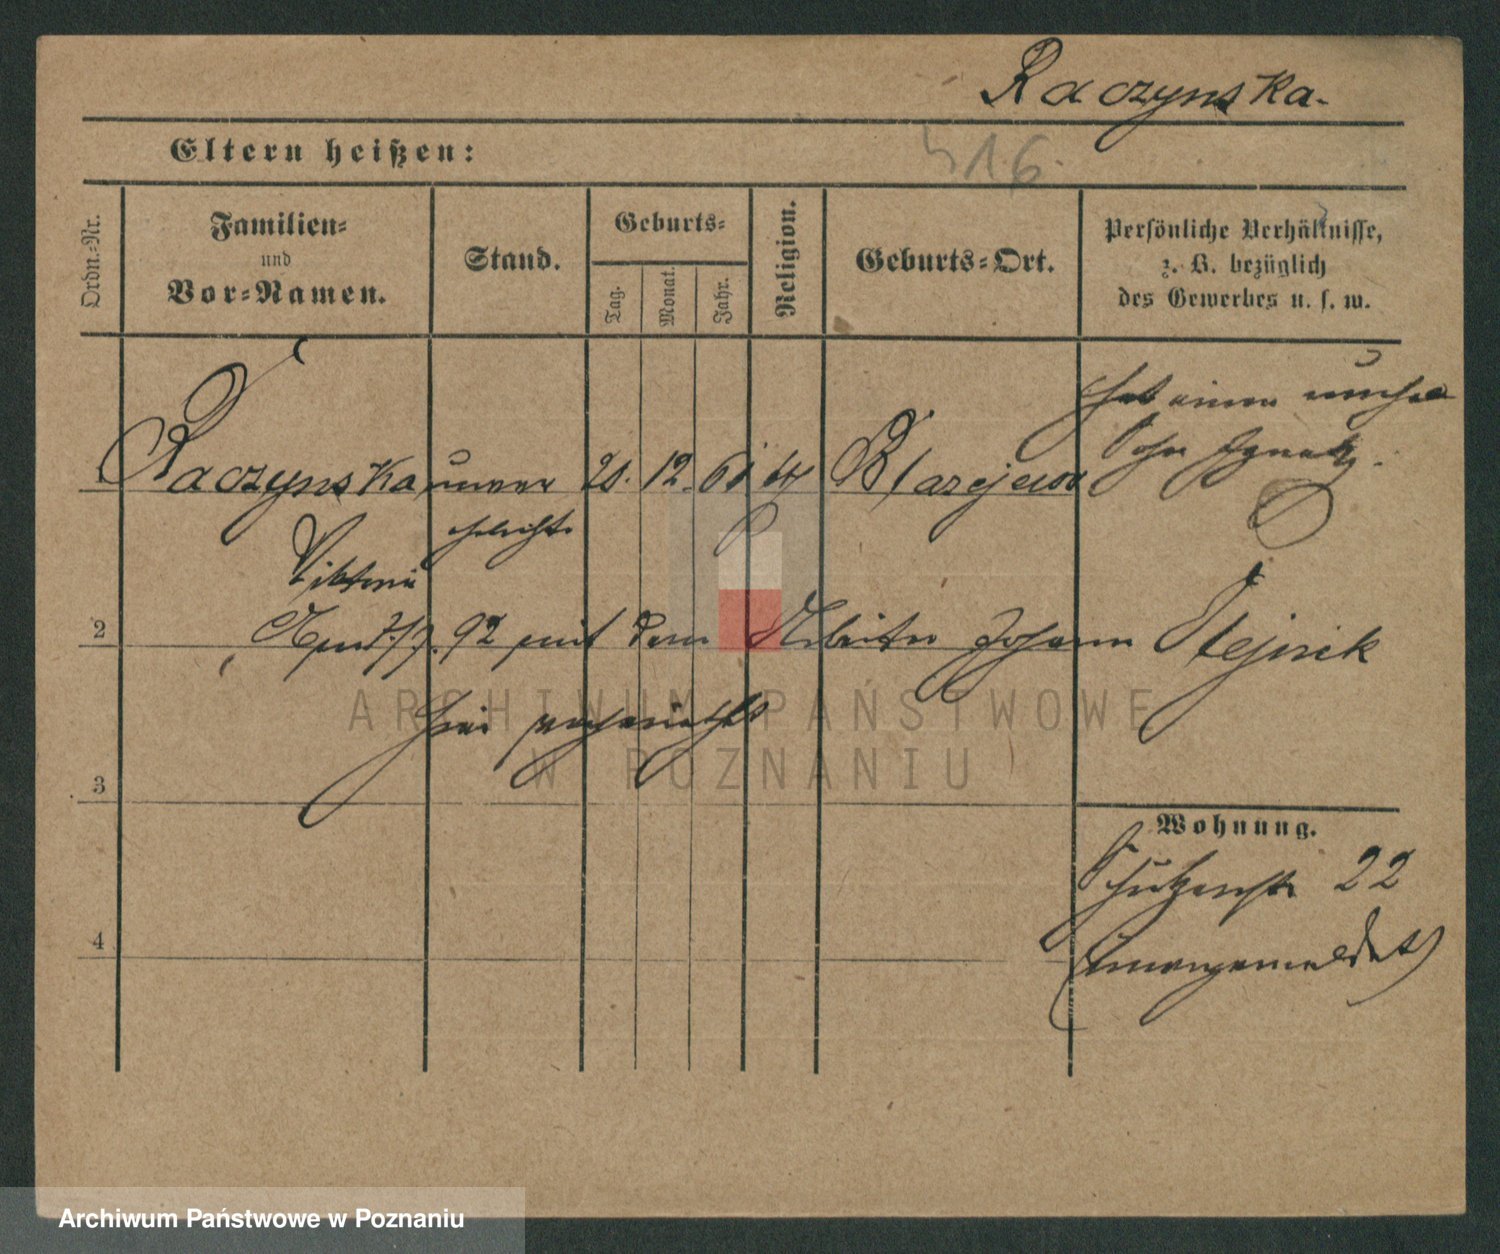 Raczynska.
Eltern heißen:
416.
Ordn.-Nr.
Familien-
und
Vor-Namen.
Stand.
Geburts-
Tag.
Monat.
Jahr.
Religion.
Geburts-Ort.
Persönliche Verhältnisse,
z. B. bezüglich
des Gewerbes u. s. w.
1 Raczynska unver 20. 12. 61 kth Blazejewo
ehelichte
Viktoria
hat einen unehel
Sohn Ignatz.
2
92 mit dem Arbeiter Johann Stejnik
hier verheirathet
3
4
Wohnung.
Schützenstr 22
(umangemeldet)
ARCHIWUM PAŃSTWOWE
W POZNANIU
Archiwum Państwowe w Poznaniu